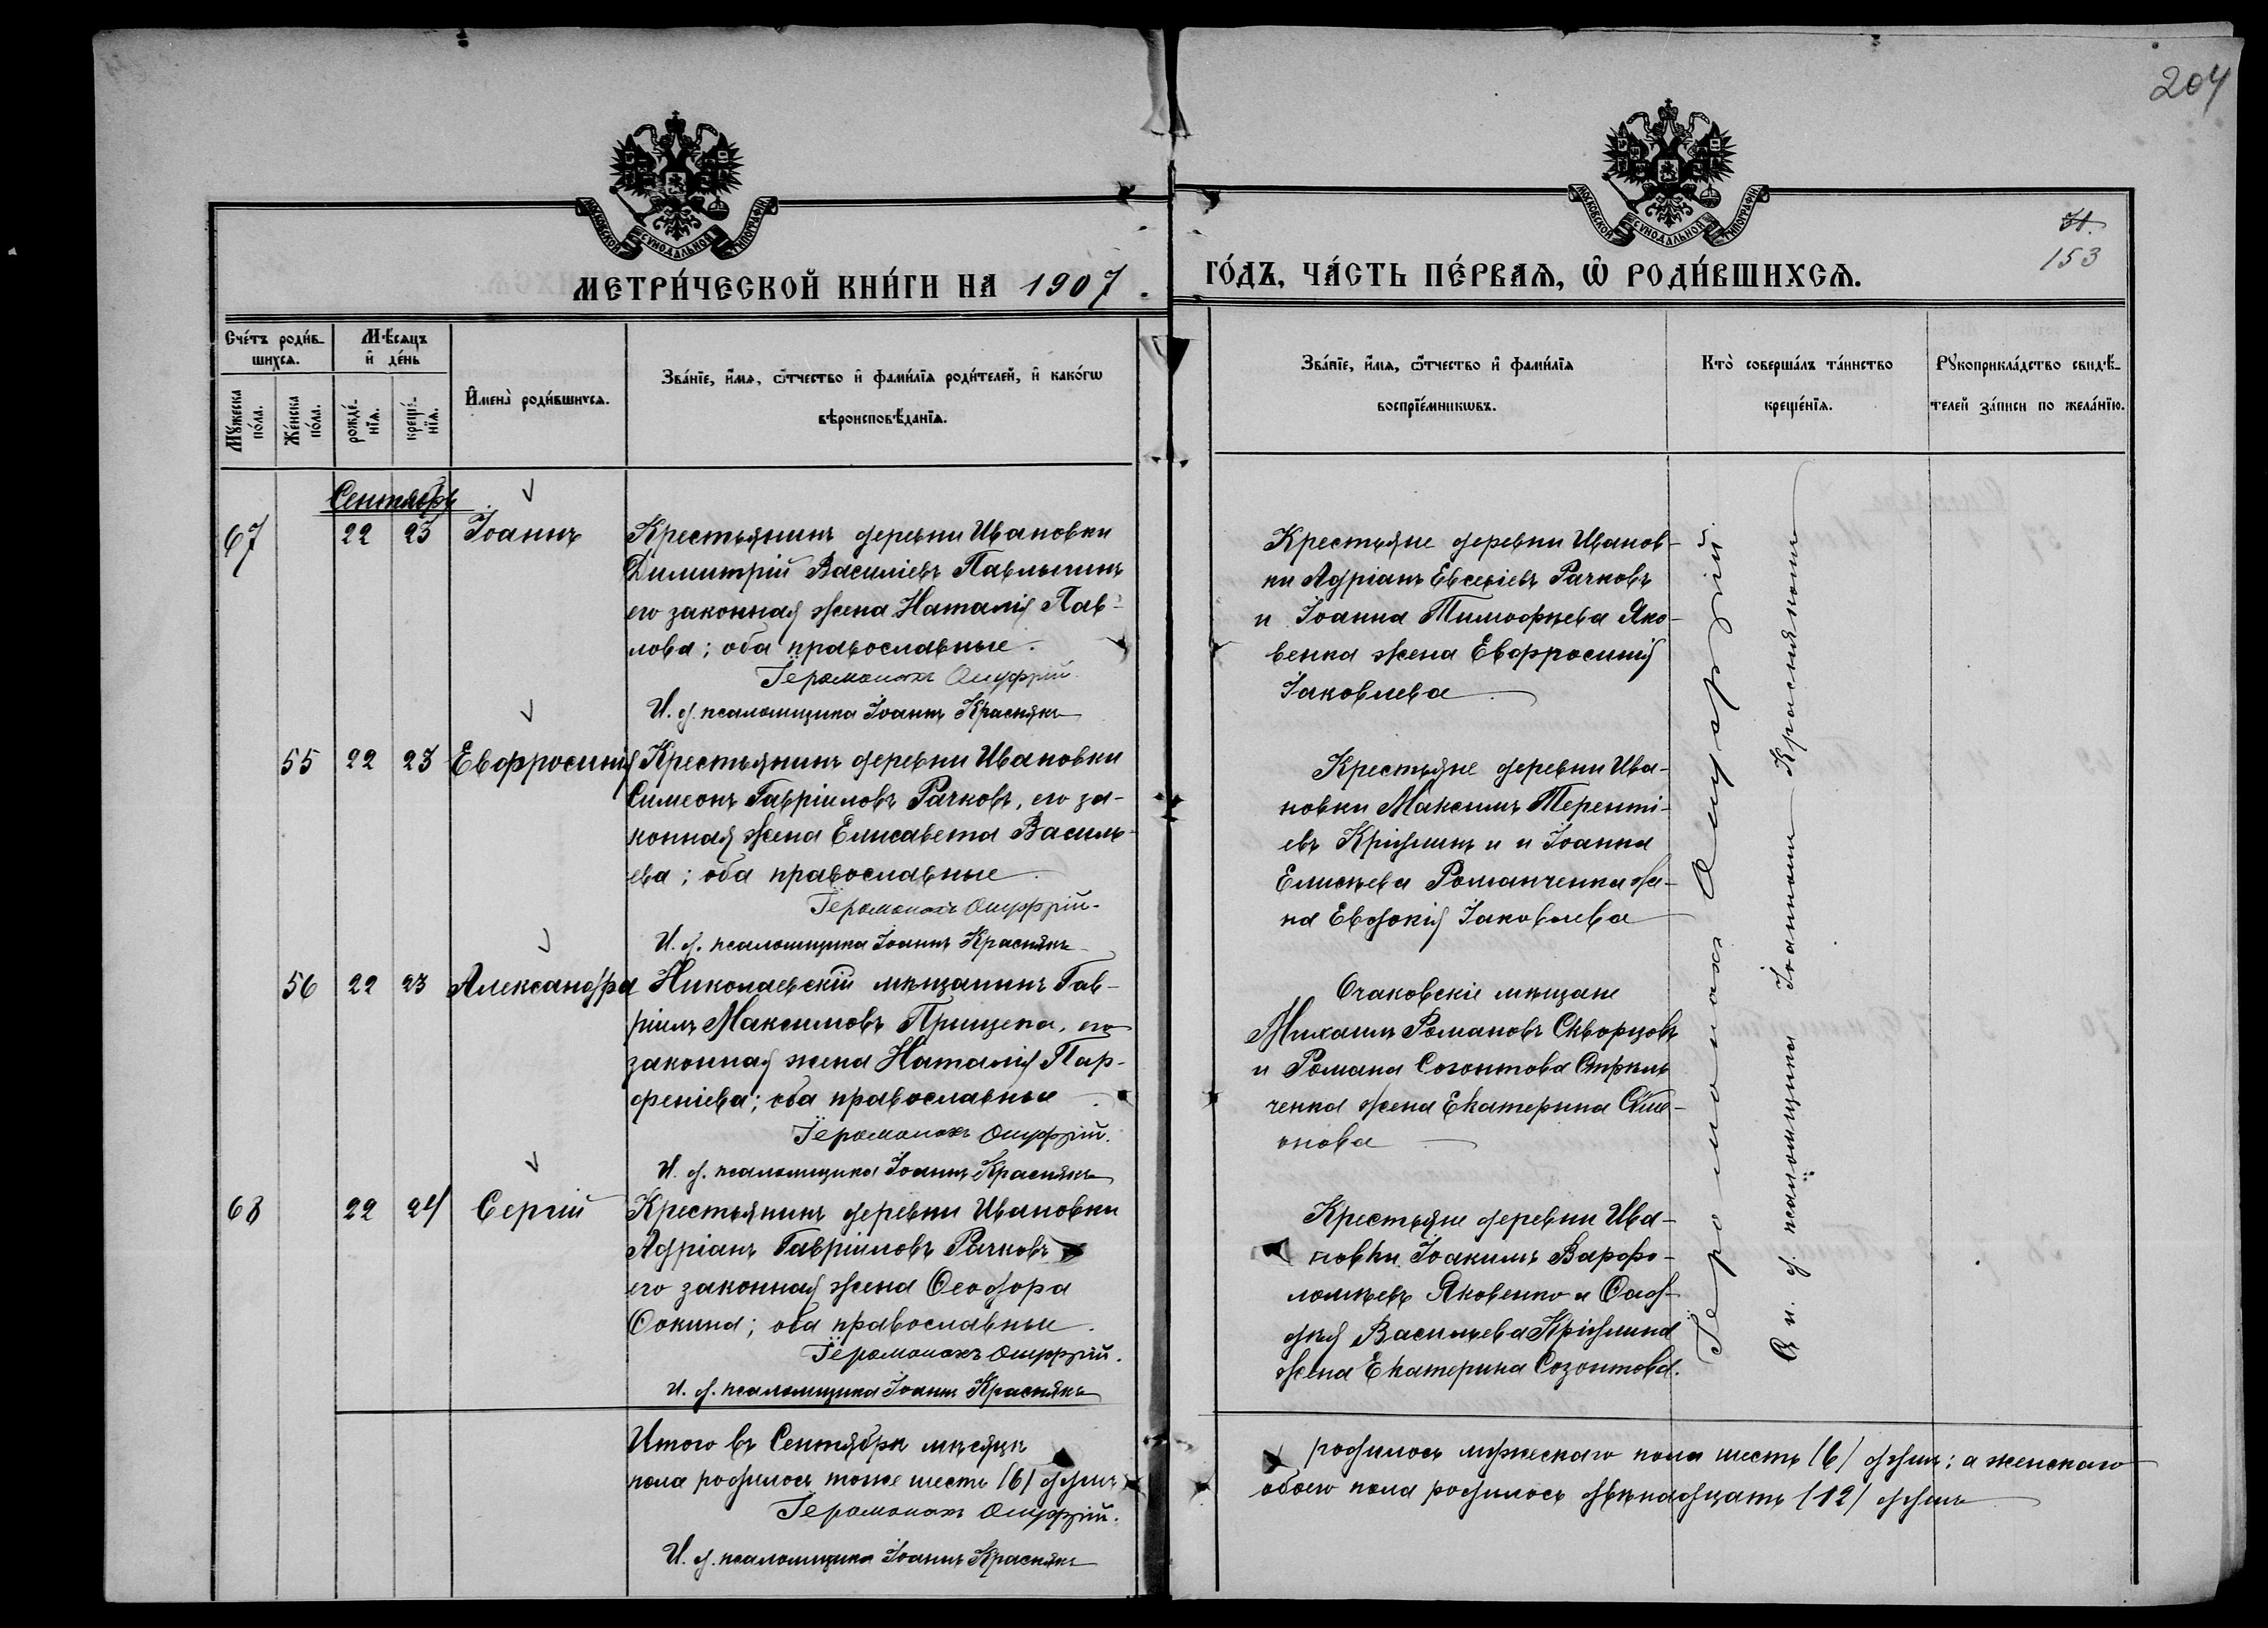 204
МОСКОВСКОЙ СѴНОДАЛЬНОЙ ТИПОГРАФІИ
МОСКОВСКОЙ СѴНОДАЛЬНОЙ ТИПОГРАФІИ
153
МЕТРИ́ЧЕСКОЙ КНИ́ГИ НА 1907.
ГО́ДЪ, ЧА́СТЬ ПЕ́РВАѦ, Ѽ РОДИ́ВШИХСѦ.
Сче́тъ роди́в-
шихсѧ.
Мꙋжеска по́ла.
Же́нска по́ла.
Мѣ́сѧцъ
и҆ де́нь
рожде́-
нїѧ.
креще́-
нїѧ.
И҆мена̀ роди́вшихсѧ.
Зва́нїе, и҆́мѧ, ѻ҆́тчество и҆ фами́лїѧ роди́телей, и҆ како́гѡ
вѣроисповѣ́данїѧ.
Зва́нїе, и҆́мѧ, ѻ҆́тчество и҆ фами́лїѧ
воспрїе́мникѡвъ.
Кто̀ соверша́лъ та́инство
креще́нїѧ.
Рꙋкоприкла́дство свидѣ́-
телей за́писи по жела́нїю.
Сентябрь
67 22 23 Іоаннъ
Крестьянинъ деревни Ивановки
Димитрій Василіевъ Павлынинъ
его законная жена Наталія Пав-
лова; оба православные.
Іеромонахъ Онуфрій.
И. д. псаломщика Іоаннъ Краснякъ
Крестьяне деревни Иванов-
ки Адріанъ Евсевіевъ Рачковъ
и Іоанна Тимоѳѣева Яко-
венка жена Евфросинія
Іаковлева
55 22 23 Евфросинія
Крестьянинъ деревни Ивановки
Симеонъ Гавріиловъ Рачковъ, его за-
конная жена Елисавета Василь-
ева; оба православные.
Іеромонахъ Онуфрій.
И. д. псаломщика Іоаннъ Краснякъ
Крестьяне деревни Ива-
новки Максимъ Теренті-
евъ Крідлинъ и и Іоанна
Елисѣева Романченка же-
на Евдокія Іаковлева
56 22 23 Александра
Николаевскій мѣщанинъ Гав-
ріилъ Максимовъ Прищепа, его
законная жена Наталія Пар-
феніева; оба православные
Іеромонахъ Онуфрій.
И. д. псаломщика Іоаннъ Краснякъ
Очаковскіе мѣщане
Михаилъ Романовъ Скворцовъ
и Романа Созонтова Стрель
ченка жена Екатерина Сѵме-
онова
68 22 24 Сергій
Крестьянинъ деревни Ивановки
Адріанъ Гавріиловъ Рачковъ
его законная жена Ѳеодора
Ѳокина; оба православные.
Іеромонахъ Онуфрій.
И. д. псаломщика Іоаннъ Краснякъ
Крестьяне деревни Ива-
новки Іоакимъ Варѳо-
ломѣевъ Яковенко и Ѳад-
дея Васильева Крідлина
жена Екатерина Созонтова.
Іеромонахъ Онуфрій
Съ и. д. псаломщика Іоанномъ Краснякомъ
Итого въ Сентябрѣ мѣсяцѣ
родилось мужескаго пола шесть (6) душъ; а женскаго
пола родилось тоже шесть (6) душъ,
обоего пола родилось двѣнадцать (12) душъ
Іеромонахъ Онуфрій.
И. д. псаломщика Іоаннъ Краснякъ